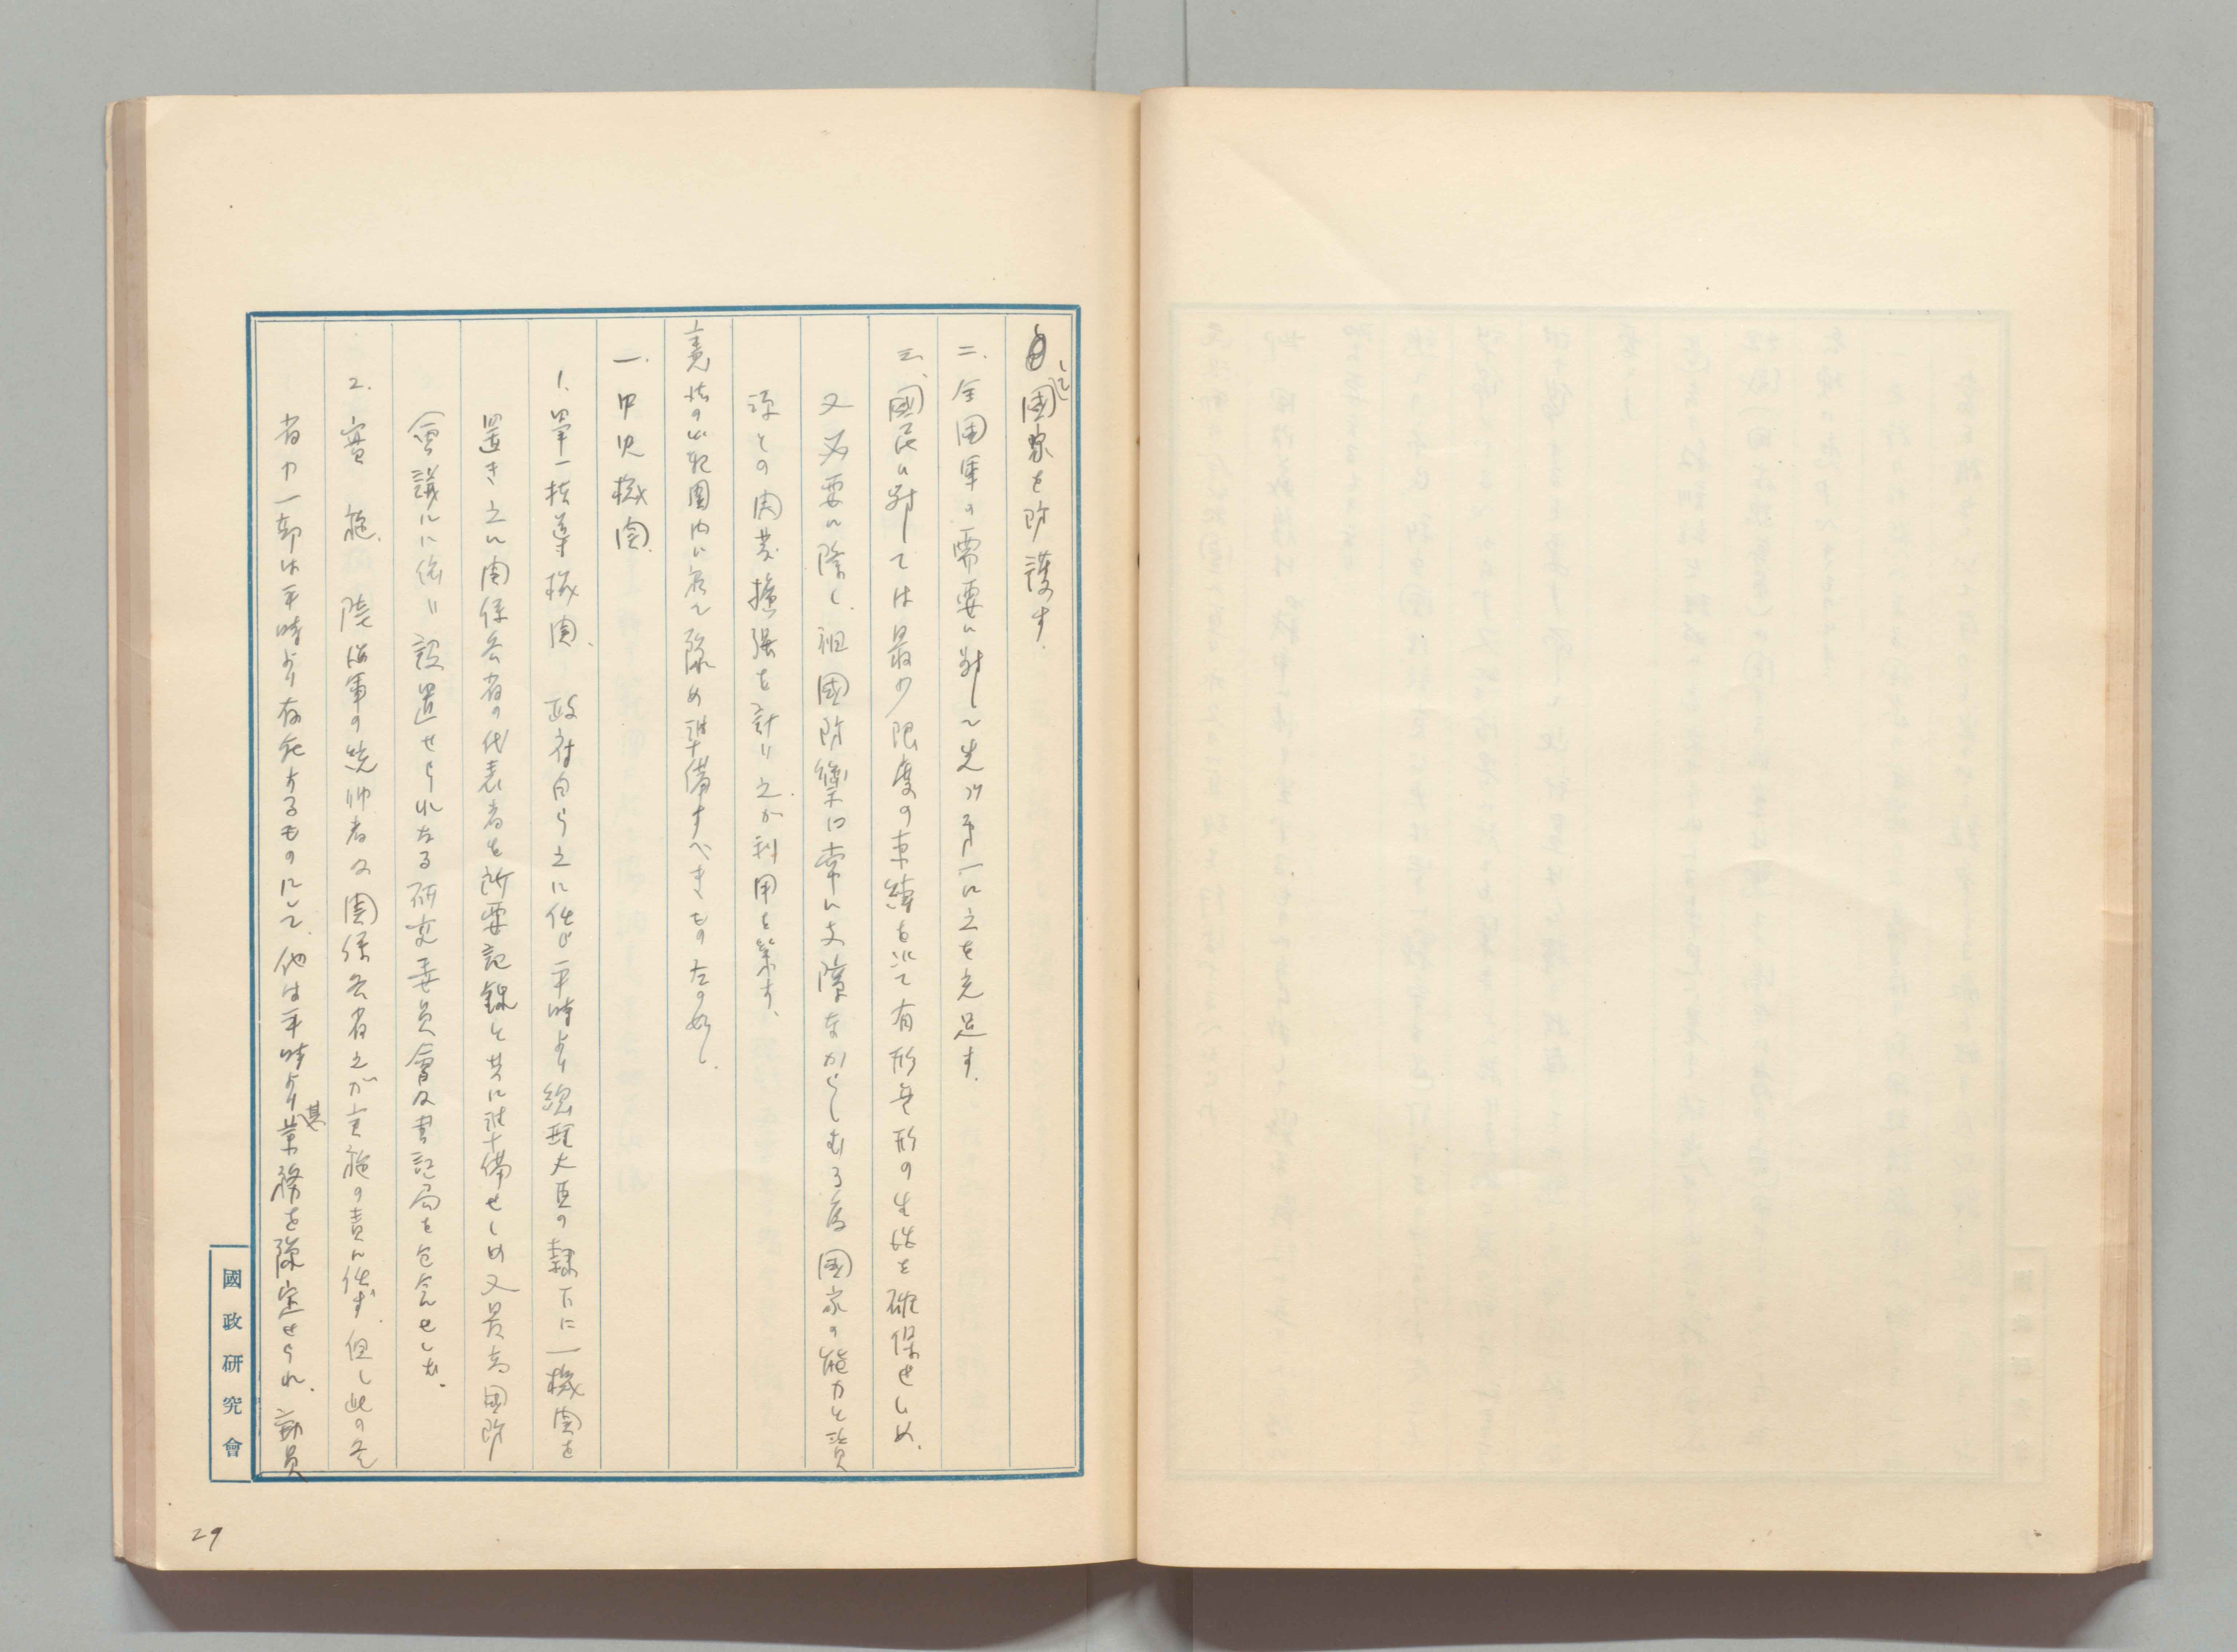 して國家を防護す.
二.全國軍の需要に對して先づ第一に之を充足す.
三、國民に對しては最少限度の束縛を以て有形無形の生活を確保せしめ、
又必要に際し、祖國防禦に常に支障なからしむる爲國家の能力と資
源との開発擴張を計り之が利用を策す、
憲法の範圍内に於て豫め準備すべきもの左の如し.
一.中央機関.
1.單一指導機関、政府自ら之に任じ平時より總理大臣の隷下に一機関を
置き之に関係各省の代表者を所要記録と共に準備せしめ又最高国防
會議に依り設置せられたる研究委員會及書記局を包含せしむ.
2.實施.陸海軍の統帥者及関係各省之が実施の責に任ず.但し此の各
省の一部は平時より存在するものにして、他は平時より其業務を豫定せられ、動員
國政研究會
29